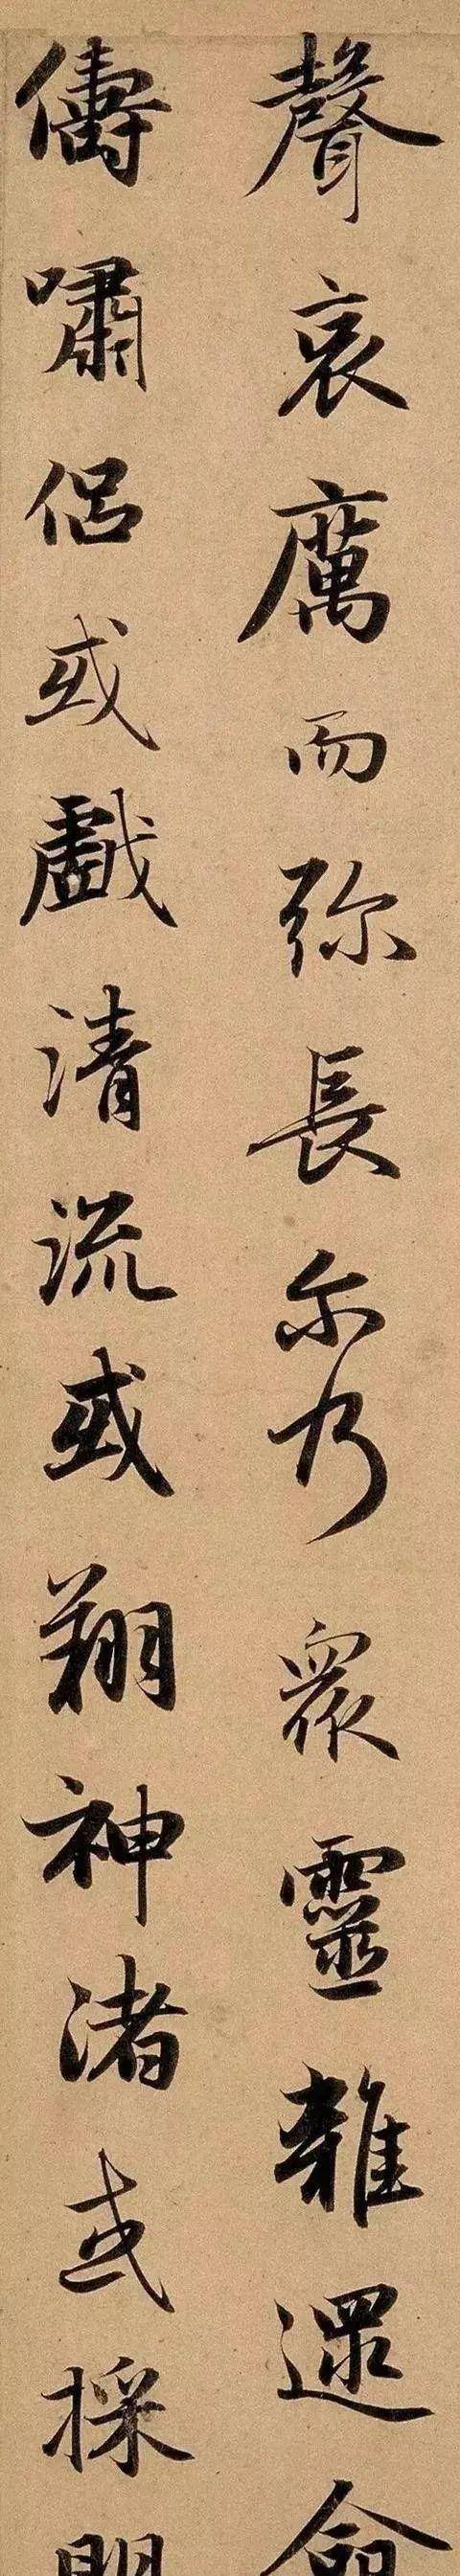 聲哀厲而弥長尔乃眾靈雜遝命
儔嘯侣或戲清流或翔神渚或採明